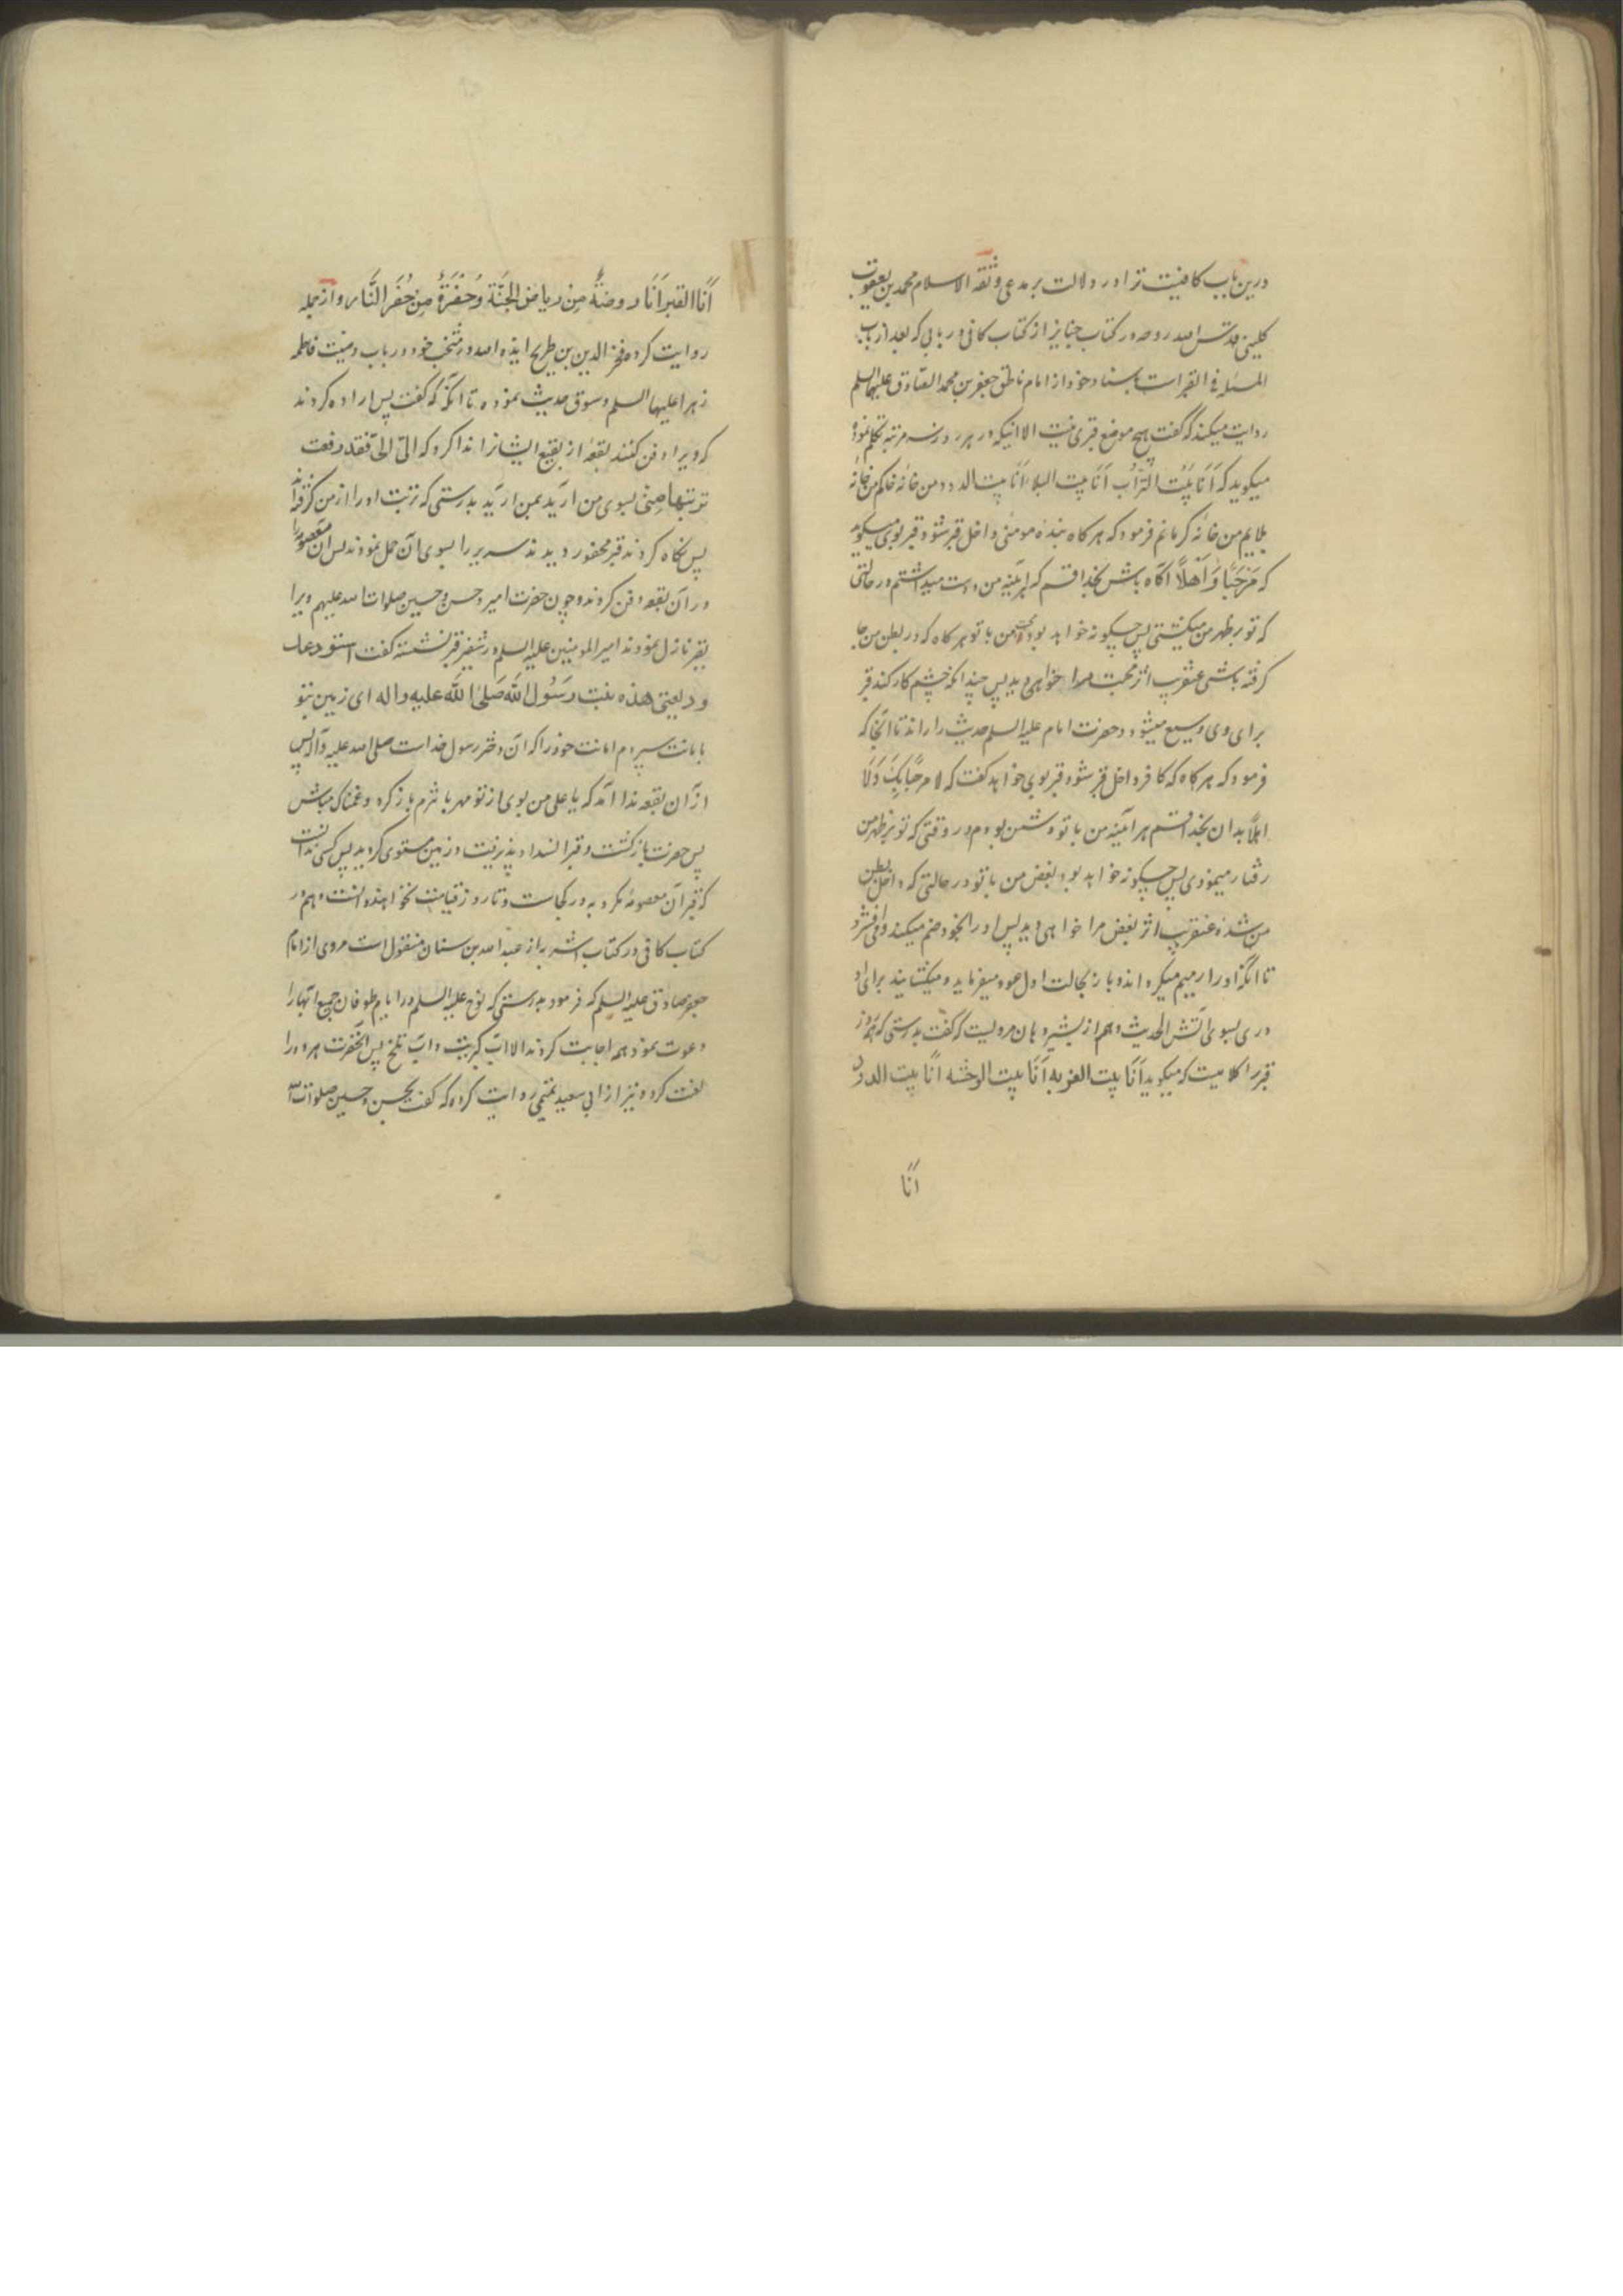 درین باب کافیست ترا در دلالت بر مدعی و ثقه الاسلام محمد بن یعقوب
کلینی قدس الله روحه در کتاب جنایز از کتاب کافی در بابی که بعد از باب
المسئله فی القبر است باسناد خود از امام ناطق جعفر بن محمد الصادق علیهما السلم
روایت میکند که گفت هیچ موضع قبری نیست الا اینکه در هر روز سه مرتبه تکلم نموده
میکوید که اَنَا بَیْتُ التُّرَاب اَنَا بیت البلا اَنَا بیت الدود من خانه خاکم من خانه
بلایم من خانه کرمانم فرمود که هر کاه بنده مومنی داخل قبر شود قبر بوی میکوید
که مَرْحَبًا وَ اَهْلًا اکاه باش بخدا قسم که هرآینه من دوست میداشتم در حالتی
که تو بر ظهر من میکشتی پس چکونه خواهد بود محبت من با تو هر کاه که در بطن من جا
کرفته باشی عنقریب اثر محبت مرا خواهی دید پس چندانکه چشم کار کند قبر
برای وی وسیع میشود و حضرت امام علیه السلم حدیث را راند تا آنجا که
فرمود که هر کاه که کافر داخل قبر شود قبر بوی خواهد گفت که لا مرحبًا بِکَ وَ لَا
اهلًا بدان بخدا قسم هرآینه من با تو دشمن بودم در وقتی که تو بر ظهر من
رفتار مینمودی پس چکونه خواهد بود بغض من با تو در حالتی که داخل بطن
من شده عنقریب اثر بغض مرا خواهی دید پس او را بخود ضم میکند و می فشرد
تا آنکه او را رمیم میکرداند و باز بحالت اول عود میفرماید و میکشایند برای او
دری بسوی آتش الحدیث و هم از بشیر دهان مرویست که گفت بدرستی که هر روز
قبر را کلامیست که میکوید اَنَا بیت الغربه اَنَا بیت الوحشه اَنَا بیت الدود
اَنَا
اَنَا القبر اَنَا روضةٌ مِن ریاض الجَنَّة وَ حُفْرَةٌ مِن حُفَرِ النَّار و از جمله
روایت کرده فخر الدین بن طریح ایده الله در منتخب خود در باب وصیت فاطمه
زهرا علیها السلم و سوق حدیث نموده تا آنکه که گفت پس اراده کردند
که ویرا دفن کنند بقعه از بقیع ایشانرا ندا کرد که الیّ الیّ فقد رفعت
تربتها منی بسوی من آرید بمن آرید بدرستی که تربت او را از من گرفته اند
پس نکاه کردند قبر محفور دیدند سریر را بسوی آن حمل نمودند پس آن معصومه را
در آن بقعه دفن کردند و چون حضرت امیر و حسن و حسین صلوات الله علیهم ویرا
بقبر نازل نمودند امیر المومنین علیه السلم در شفیر قبر نشسته گفت استودعک
ودیعتی هذه بنت رَسُول الله صَلَّی الله علیه و اله ای زمین بتو
بامانت سپردم امانت خود را که آن دختر رسول خداست صلی الله علیه و آله پس
از آن بقعه ندا آمد که یا علی من بوی از تو مهربانترم باز کرد و غمناک مباش
پس حضرت بازگشت و قبر انسداد پذیرفت و زمین مستوی کردید پس کسی ندانست
که قبر آن معصومه در کجاست و تا روز قیامت نخواهند دانست و هم در
کتاب کافی در کتاب اشربه از عبد الله بن سنان منقول است مروی از امام
جعفر صادق علیه السلم که فرمود بدرستی که نوح علیه السلم در ایام طوفان جمیع آبها را
دعوت نمود همه اجابت کردند الا آب کبریت و آب تلخ پس آنحضرت هر دو را
لعنت کرد و نیز از ابی سعید روایت کرده که گفت حسن و حسین صلوات الله